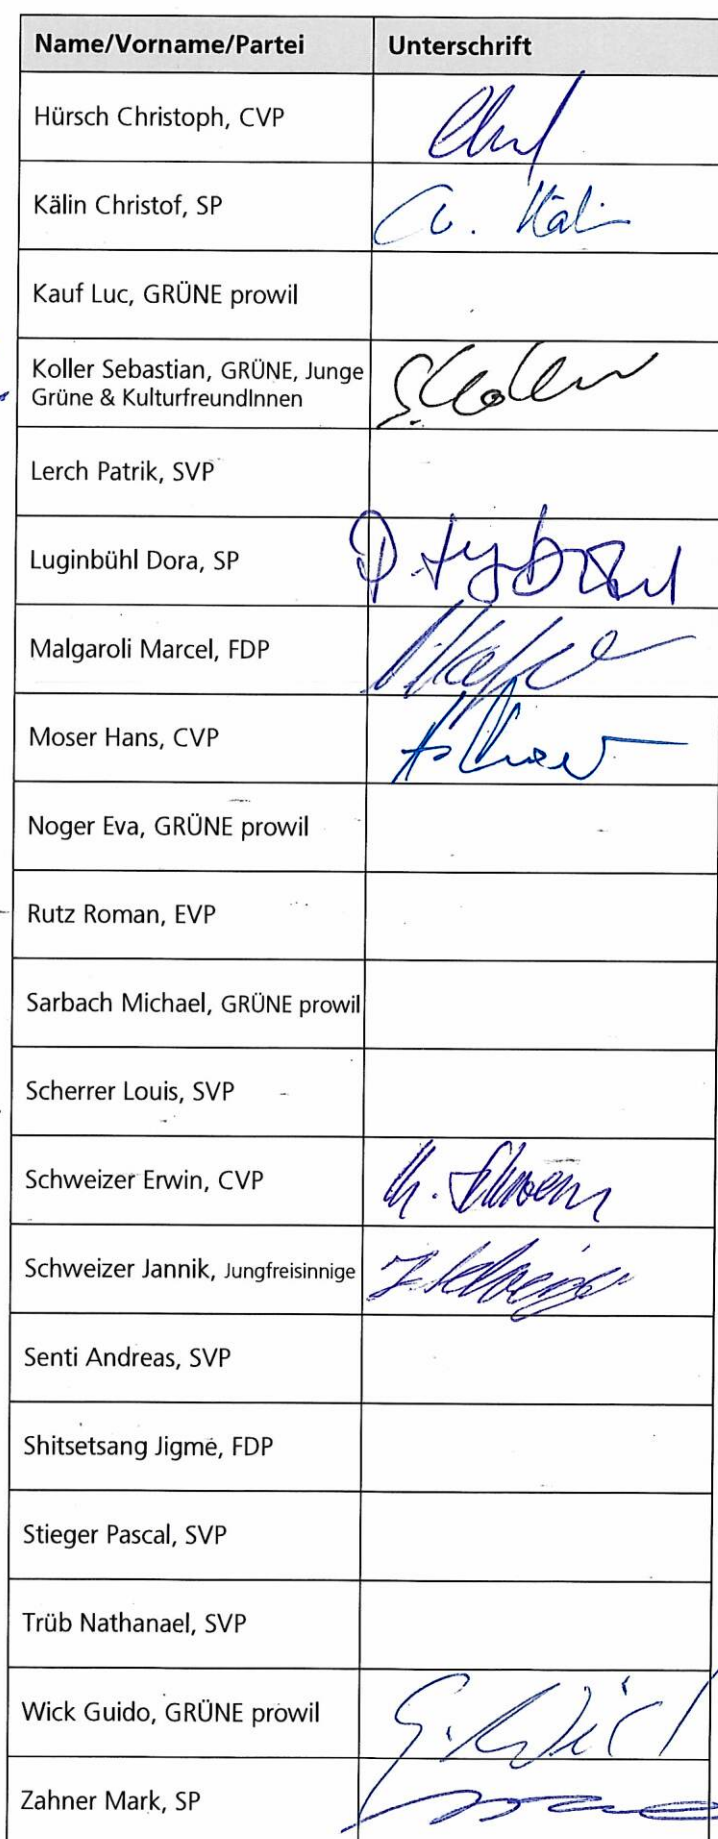 Name/Vorname/Partei Unterschrift
Hürsch Christoph, CVP
Kälin Christof, SP C. Käli
Kauf Luc, GRÜNE prowil
Koller Sebastian, GRÜNE, Junge
Grüne & KulturfreundInnen S. Koller
Lerch Patrik, SVP
Luginbühl Dora, SP
Malgaroli Marcel, FDP
Moser Hans, CVP
Noger Eva, GRÜNE prowil
Rutz Roman, EVP
Sarbach Michael, GRÜNE prowil
Scherrer Louis, SVP
Schweizer Erwin, CVP
Schweizer Jannik, Jungfreisinnige
Senti Andreas, SVP
Shitsetsang Jigme, FDP
Stieger Pascal, SVP
Trüb Nathanael, SVP
Wick Guido, GRÜNE prowil G. Wick
Zahner Mark, SP